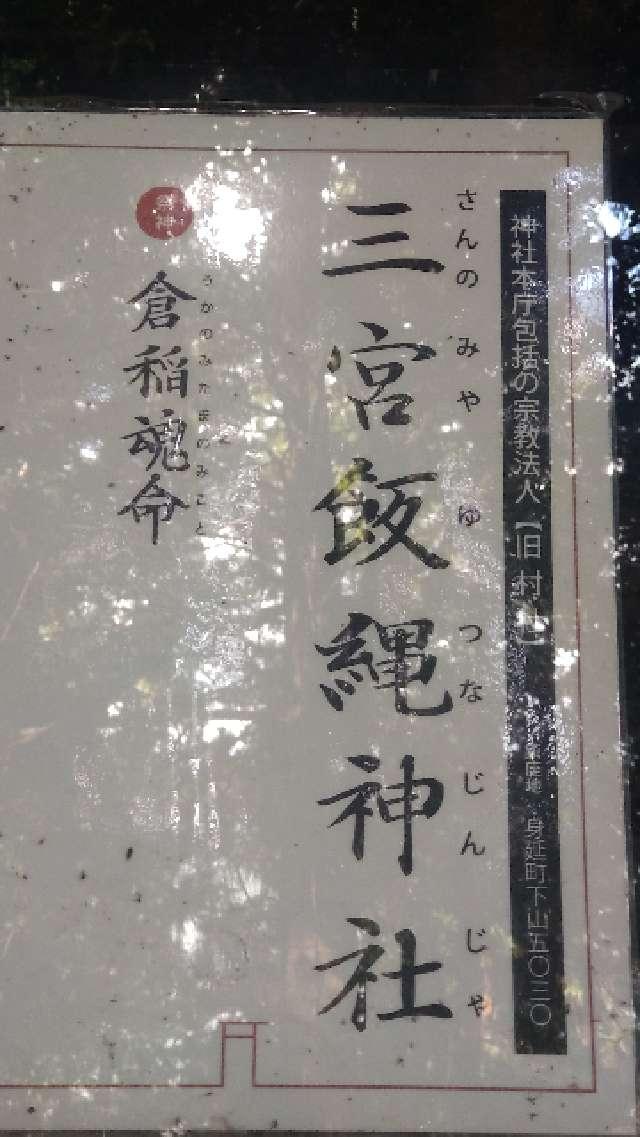 神社本庁包括の宗教法人【旧村社】 身延町下山五〇三〇
さんのみやゆづなじんじゃ
三宮飯縄神社
祭神
うかのみたまのみこと
倉稲魂命